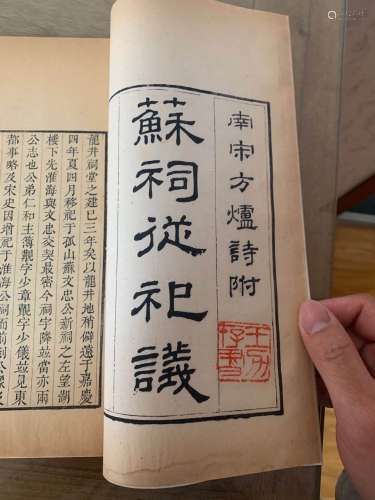 南宋方爐詩附
蘇祠從祀議
龍井祠堂之建已三年矣以龍井地稍僻遠于嘉慶
四年夏四月移祀于孤山蘇文忠公新祠之左望湖
樓下先淮海與文忠交契最密今祠宇隣並當亦兩
公志也公弟仁和主簿覿字少章覯字少儀並見東
都事略及宋史因增祀于淮海公祠而前刻